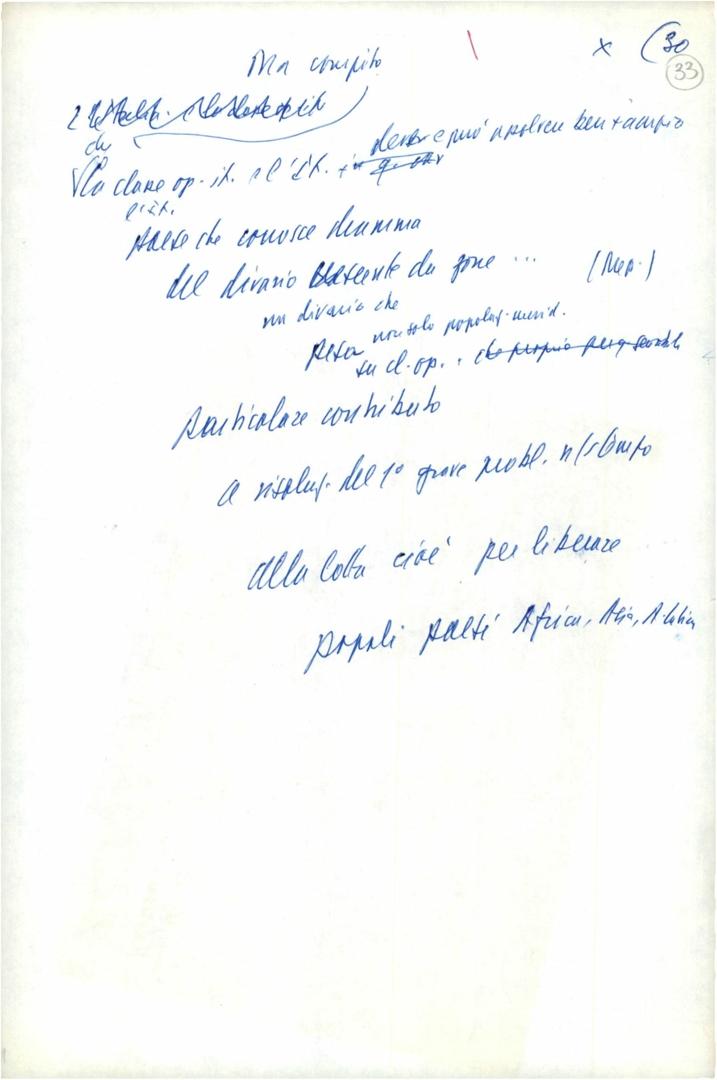 x (30
33
Ma compito
che
La classe op. it. e l'It. deve e può assolvere ben + ampio
l'It.
paese che conosce dramma
del divario crescente da zone ... (Mer.)
un divario che
pesa non solo popolaz. merid.
su cl. op.
particolare contributo
a risoluz. del 1° grave probl. n/s tempo
alla lotta cioè per liberare
popoli paesi Africa, Asia, A. latina